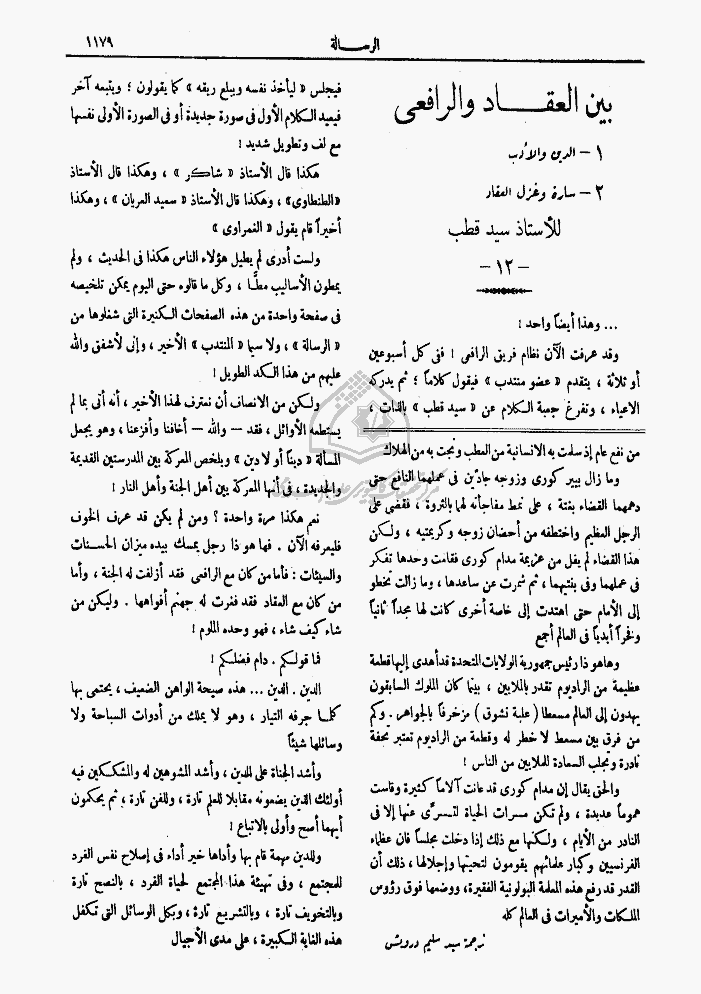 الرسالة
١١٧٩
بين العقاد والرافعى
١ - الدين والأدب
٢ - سارة وغزل العقاد
للأستاذ سيد قطب
- ١٢ -
... وهذا أيضاً واحد !
وقد عرفت الآن نظام فريق الرافعى ! ففى كل أسبوعين
أو ثلاثة ، يتقدم « عضو منتدب » فيقول كلاماً ؛ ثم يدركه
الاعياء ، وتفرغ جعبة الكلام عن « سيد قطب » بالذات ،
فيجلس « ليأخذ نفسه ويبلع ريقه » كما يقولون ؛ ويتبعه آخر
فيعيد الكلام الأول فى صورة جديدة أو فى الصورة الأولى نفسها
مع لف وتطويل شديد !
هكذا قال الأستاذ « شاكر » ، وهكذا قال الأستاذ
« الطنطاوى » ، وهكذا قال الأستاذ « سعيد العريان » ، وهكذا
أخيراً قام يقول « الغمراوى »
ولست أدرى لم يطيل هؤلاء الناس هكذا فى الحديث ، ولم
يمطون الأساليب مطًّا ، وكل ما قالوه حتى اليوم يمكن تلخيصه
فى صفحة واحدة من هذه الصفحات الكثيرة التى شغلوها من
« الرسالة » ، ولا سيما « المنتدب » الأخير ، وإنى لأشفق والله
عليهم من هذا الكد الطويل !
ولكن من الانصاف أن نعترف لهذا الأخير ، أنه أتى بما لم
يستطعه الأوائل ، فقد — والله — أخافنا وأفزعنا ، وهو يجعل
المسألة « ديناً أو لا دين » ويلخص المعركة بين المدرستين القديمة
والجديدة ، فى أنها المعركة بين أهل الجنة وأهل النار !
نعم هكذا مرة واحدة ؟ ومن لم يكن قد عرف الخوف
فليعرفه الآن . فها هو ذا رجل يمسك بيده ميزان الحسنات
والسيئات : فأما من كان مع الرافعى فقد أزلفت له الجنة ، وأما
من كان مع العقاد فقد فغرت له جهنم أفواهها . وليكن من
شاء كيف شاء ، فهو وحده الملوم !
فما قولكم . دام فضلكم !
الدين . الدين ... هذه صيحة الواهن الضعيف ، يحتمى بها
كلما جرفه التيار ، وهو لا يملك من أدوات السباحة ولا
وسائلها شيئاً
وأشد الجناة على الدين ، وأشد المشوهين له والمشككين فيه
أولئك الذين يضعونه مقابلا للعلم تارة ، وللفن تارة ، ثم يحكمون
أيهما أصح وأولى بالاتباع !
وللدين مهمة قام بها وأداها خير أداء فى إصلاح نفس الفرد
للمجتمع ، وفى تهيئة هذا المجتمع لحياة الفرد ، بالنصح تارة
وبالتخويف تارة ، وبالتشريع تارة ، وبكل الوسائل التى تكفل
هذه الغاية الكبيرة ، على مدى الأجيال
من نفع عام إذ سلمت به الانسانية من العطب ونجت به من الهلاك
وما زال بيير كورى وزوجه جادّين فى عملهما النافع حتى
دهمهما القضاء بغتة ، على نمط مفاجأته لهما بالثروة ، فقضى على
الرجل العظيم واختطفه من أحضان زوجه وكريمتيه ، ولكن
هذا القضاء لم يفل من عزيمة مدام كورى فقامت وحدها تفكر
فى عملهما وفى بنتيهما ، ثم شمرت عن ساعدها ، وما زالت تخطو
إلى الأمام حتى اهتدت إلى خاصة أخرى كانت لها مجداً ثانياً
وفخراً أبدياً فى العالم أجمع
وهاهو ذا رئيس جمهورية الولايات المتحدة قد أهدى إليها قطعة
عظيمة من الراديوم تقدر بالملايين ، بينما كان الملوك السابقون
يهدون إلى العالم مسعطا ( علبة نشوق ) مزخرفاً بالجواهر . وكم
من فرق بين مسعط لا خطر له وقطعة من الراديوم تعتبر تحفة
نادرة وتجلب السعادة للملايين من الناس !
والحق يقال إن مدام كورى قد عانت آلاماً كثيرة وقاست
هموماً عديدة ، ولم تكن مسرات الحياة لتسرِّى عنها إلا فى
النادر من الأيام ، ولكنها مع ذلك إذا دخلت مجلساً فان عظماء
الفرنسيين وكبار علمائهم يقومون لتحيتها وإجلالها ، ذلك أن
القدر قد رفع هذه المعلمة البولونية الفقيرة، ووضعها فوق رؤوس
الملكات والأميرات فى العالم كله
ترجمة سيد سليم درويش